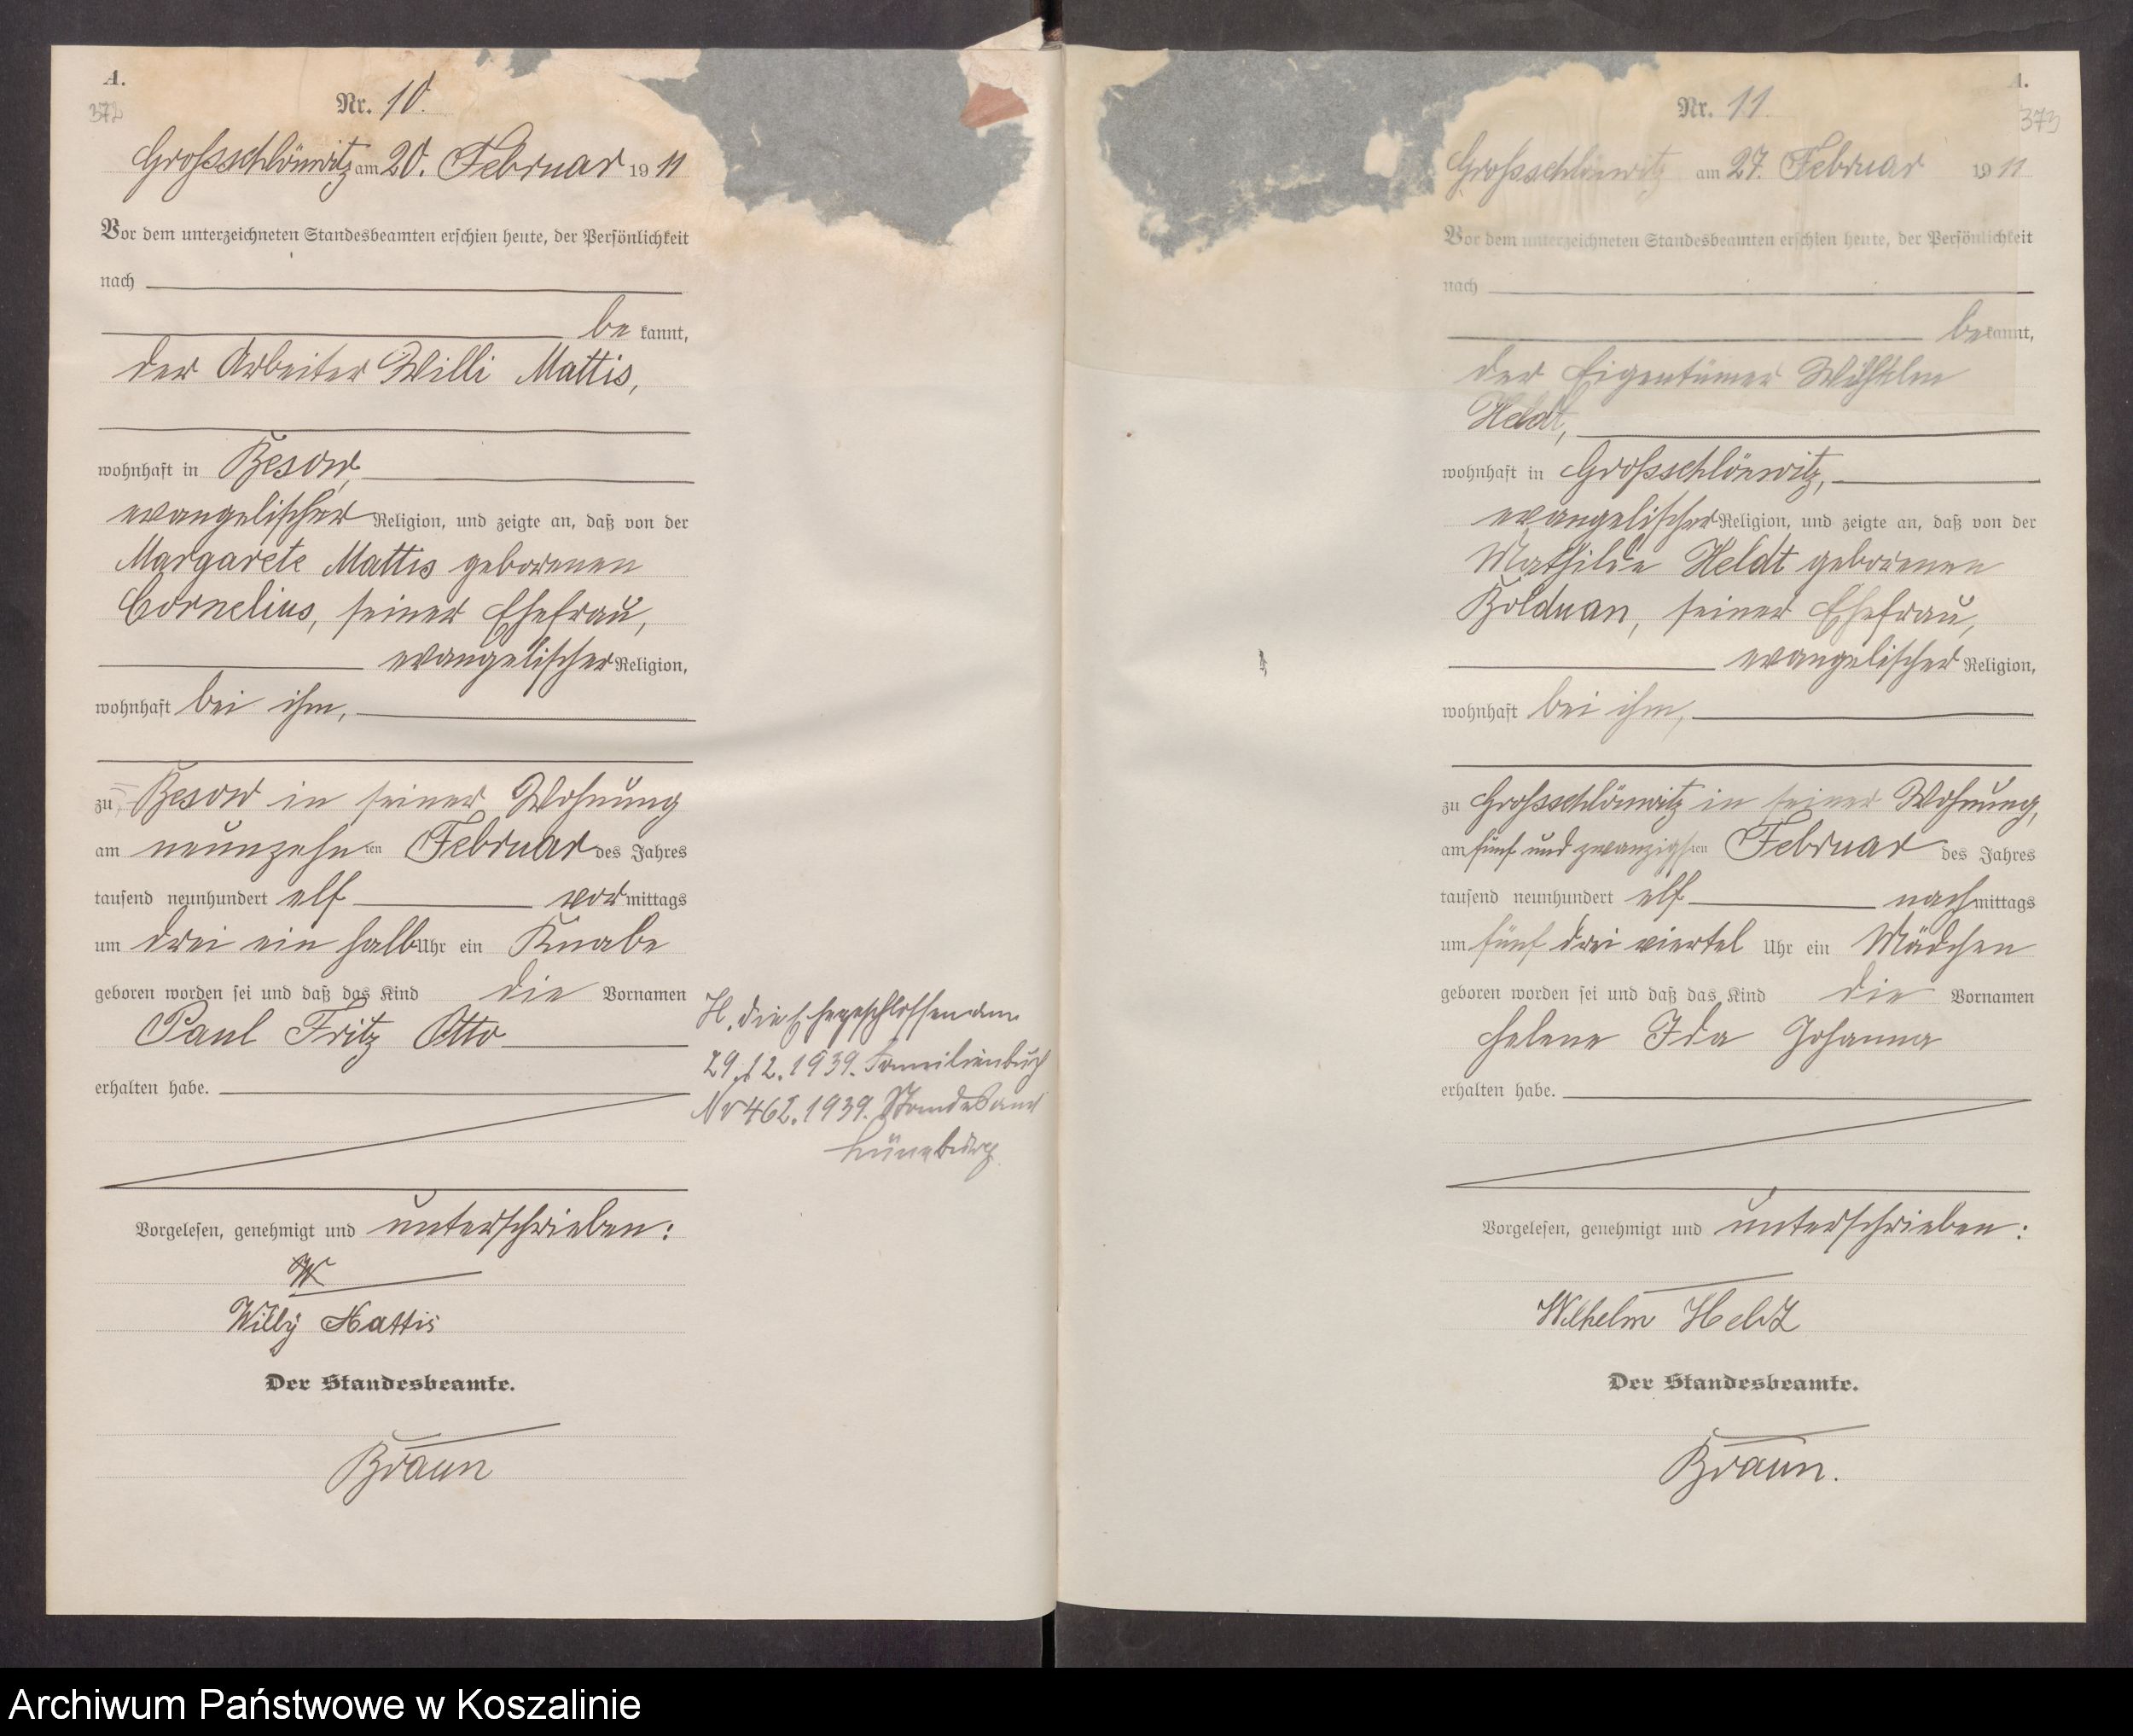 A.
372
Nr. 10.
Großschlönwitz am 20. Februar 1911
Vor dem unterzeichneten Standesbeamten erschien heute, der Persönlichkeit
nach
be kannt,
der Arbeiter Willi Mattis,
wohnhaft in Besow,
evangelischer Religion, und zeigte an, daß von der
Margarete Mattis geborenen
Cornelius, seiner Ehefrau,
evangelischer Religion,
wohnhaft bei ihm,
zu Besow in seiner Wohnung
am neunzehn ten Februar des Jahres
tausend neunhundert elf vor mittags
um drei ein halb Uhr ein Knabe
geboren worden sei und daß das Kind die Vornamen
Paul Fritz Otto
erhalten habe.
H. die Ehe geschlossen am
29.12.1939. Familienbuch
Nr 462.1939. Standesamt
Lüneburg.
Vorgelesen, genehmigt und unterschrieben:
W
Willy Mattis
Der Standesbeamte.
Braun
A.
373
Nr. 11.
Großschlönwitz am 27. Februar 1911
Vor dem unterzeichneten Standesbeamten erschien heute, der Persönlichkeit
nach
be kannt,
der Eigentümer Wilhelm
Heldt,
wohnhaft in Großschlönwitz,
evangelischer Religion, und zeigte an, daß von der
Mathilde Heldt geborenen
Bolduan, seiner Ehefrau,
evangelischer Religion,
wohnhaft bei ihm,
zu Großschlönwitz in seiner Wohnung,
am fünf und zwanzigsten Februar des Jahres
tausend neunhundert elf nach mittags
um fünf drei viertel Uhr ein Mädchen
geboren worden sei und daß das Kind die Vornamen
Helene Ida Johanna
erhalten habe.
Vorgelesen, genehmigt und unterschrieben:
Wilhelm Heldt
Der Standesbeamte.
Braun.
Archiwum Państwowe w Koszalinie